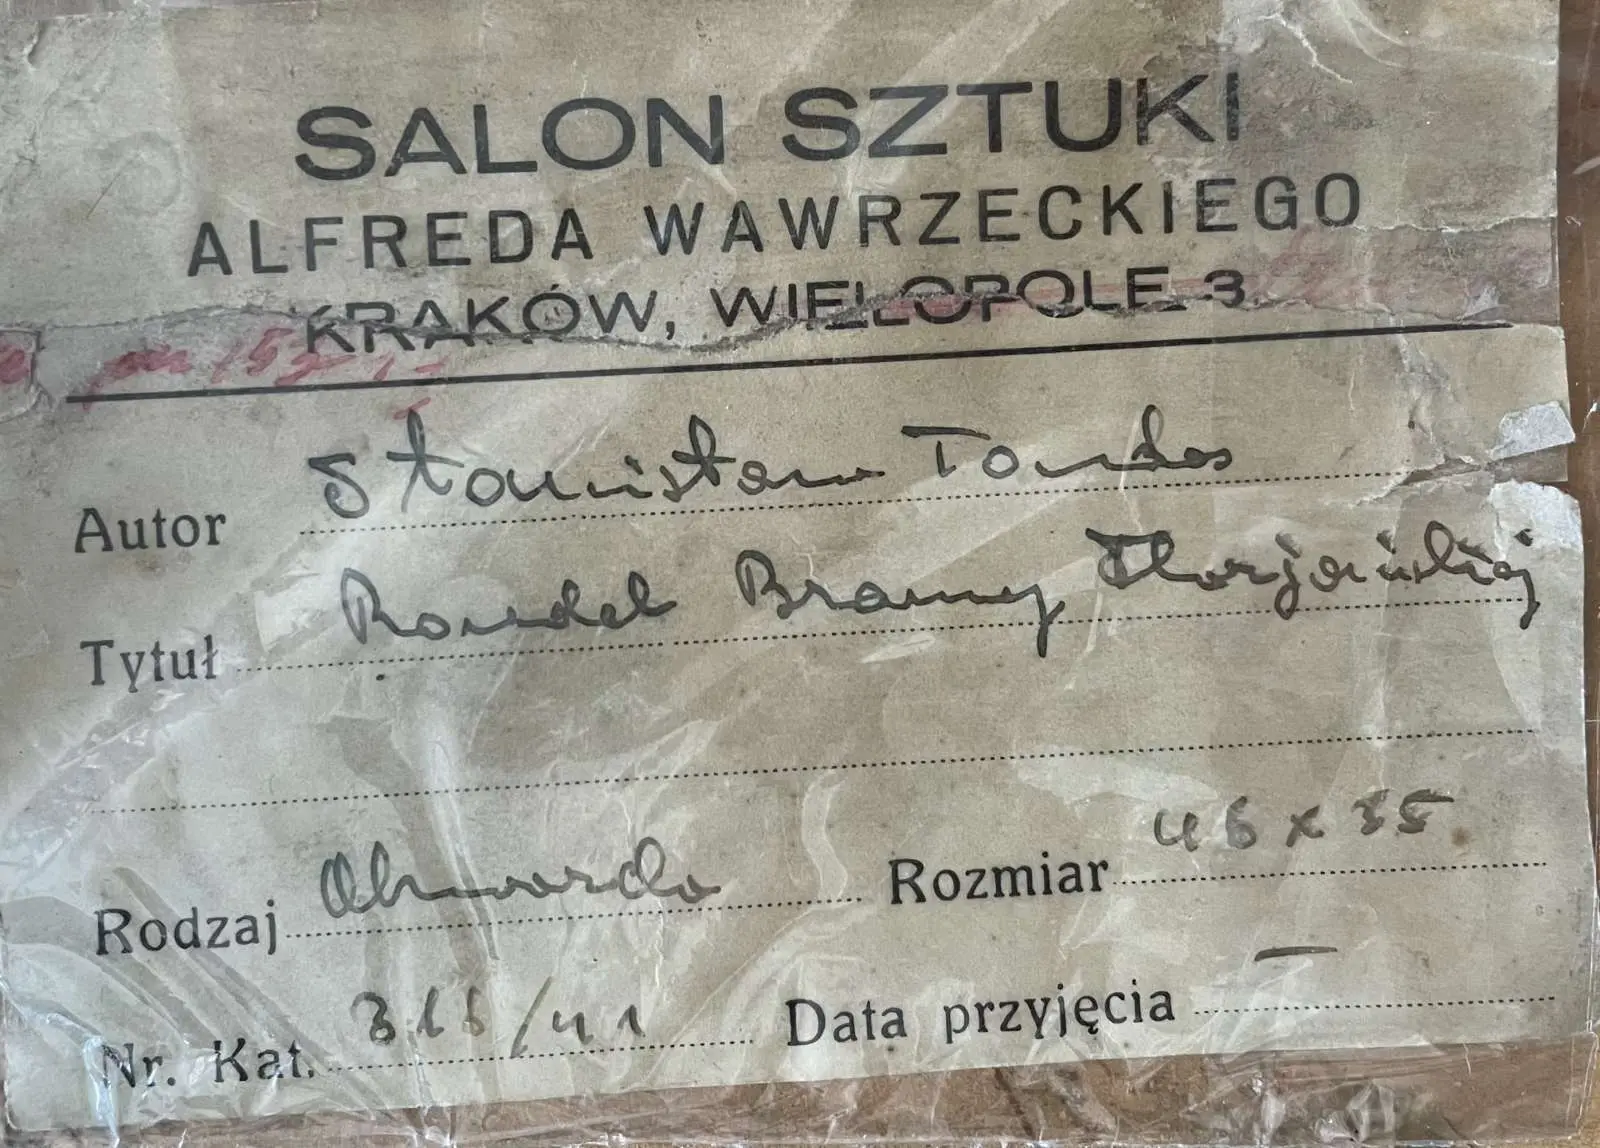 SALON SZTUKI
ALFREDA WAWRZECKIEGO
KRAKÓW, WIELOPOLE 3.
Autor Stanisław Tondos
Tytuł Rondel Bramy Florjańskiej
Rodzaj Akwarela Rozmiar 46 x 35
Nr. Kat. 366/41 Data przyjęcia —